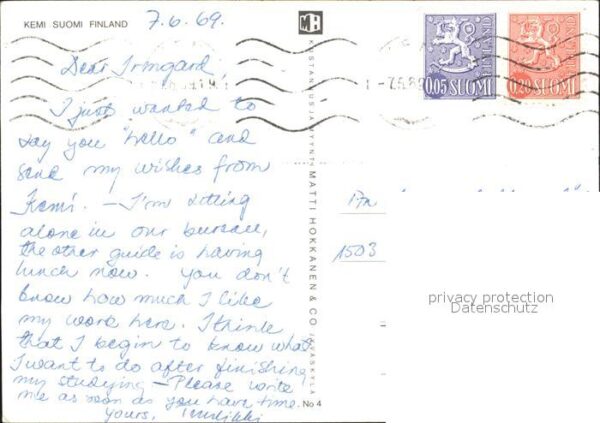 KEMI SUOMI FINLAND
7.6.69.
MH
Dear Irmgard,
I just wanted to
say you "hello" and
send my wishes from
Kemi. – I'm sitting
alone in our bureau,
the other guide is having
lunch now. You don't
know how much I like
my work here. I think
that I begin to know what
I want to do after finishing
my studying – Please write
me as soon as you have time.
Yours,
MATTI HOKKANEN & CO
No 4
0.05 SUOMI
FINLAND
0.20 SUOMI
FINLAND
1503
privacy protection
Datenschutz